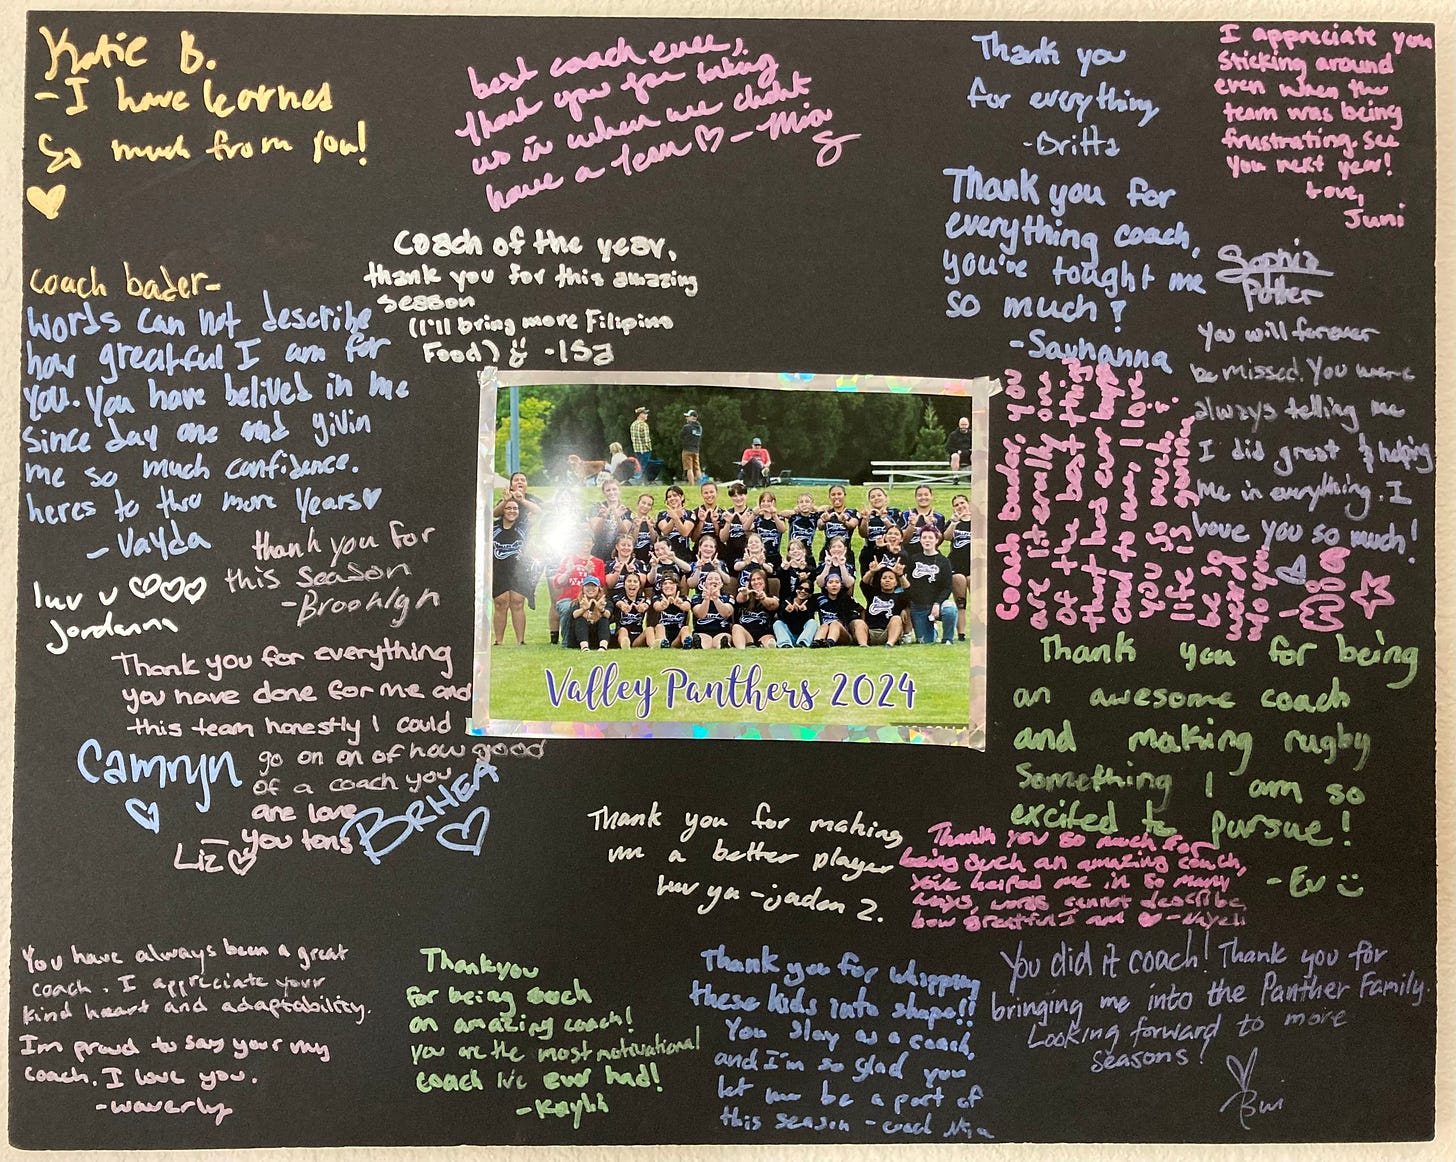 Katie B.
- I have learned
so much from you!
best coach ever,
thank you for taking
us in when we didnt
have a team ♡ - Mia
Thank you
for everything
- Britta
I appreciate you
sticking around
even when the
team was being
frustrating. see
you next year!
Love,
Juni
Thank you for
everything coach,
you've tought me
so much!
- Savhanna
Coach of the year,
thank you for this amazing
season
(I'll bring more Filipino
Food) - Isa
coach bader-
words can not describe
how greatful I am for
you. You have belived in me
since day one and givin
me so much confidence.
heres to two more years♥
- Vayda
Sophia
Potter
You will forever
be missed. You were
always telling me
I did great & helping
me in everything. I
love you so much!
Coach bader, you
are literally one
of the best things
that has ever happ
and to me, I love
you so much.
life is gonna
be so
weird
w/o you
thank you for
this season
- Brooklyn
luv u ♡♡♡
Jordanna
Valley Panthers 2024
Thank you for everything
you have done for me and
this team honestly I could
go on on of how good
of a coach you
are love
you tons
Camryn
♡
BRHEA
♡
Liz ♡
Thank you for being
an awesome coach
and making rugby
something I am so
excited to pursue!
- Ev
Thank you for making
me a better player
luv ya - jaden Z.
Thank you so much for
being such an amazing coach,
you've helped me in so many
ways, words cannot describe
how greatful I am ♥ - Nayeli
You have always been a great
coach. I appreciate your
kind heart and adaptability.
I'm proud to say your my
coach. I love you.
- Waverly
Thankyou
for being such
an amazing coach!
you are the most motivational
coach ive ever had!
- Kaylih
Thank you for whipping
these kids into shape!!
You slay as a coach,
and I'm so glad you
let me be a part of
this season - coach Nia
You did it coach! Thank you for
bringing me into the Panther Family.
Looking forward to more
seasons!